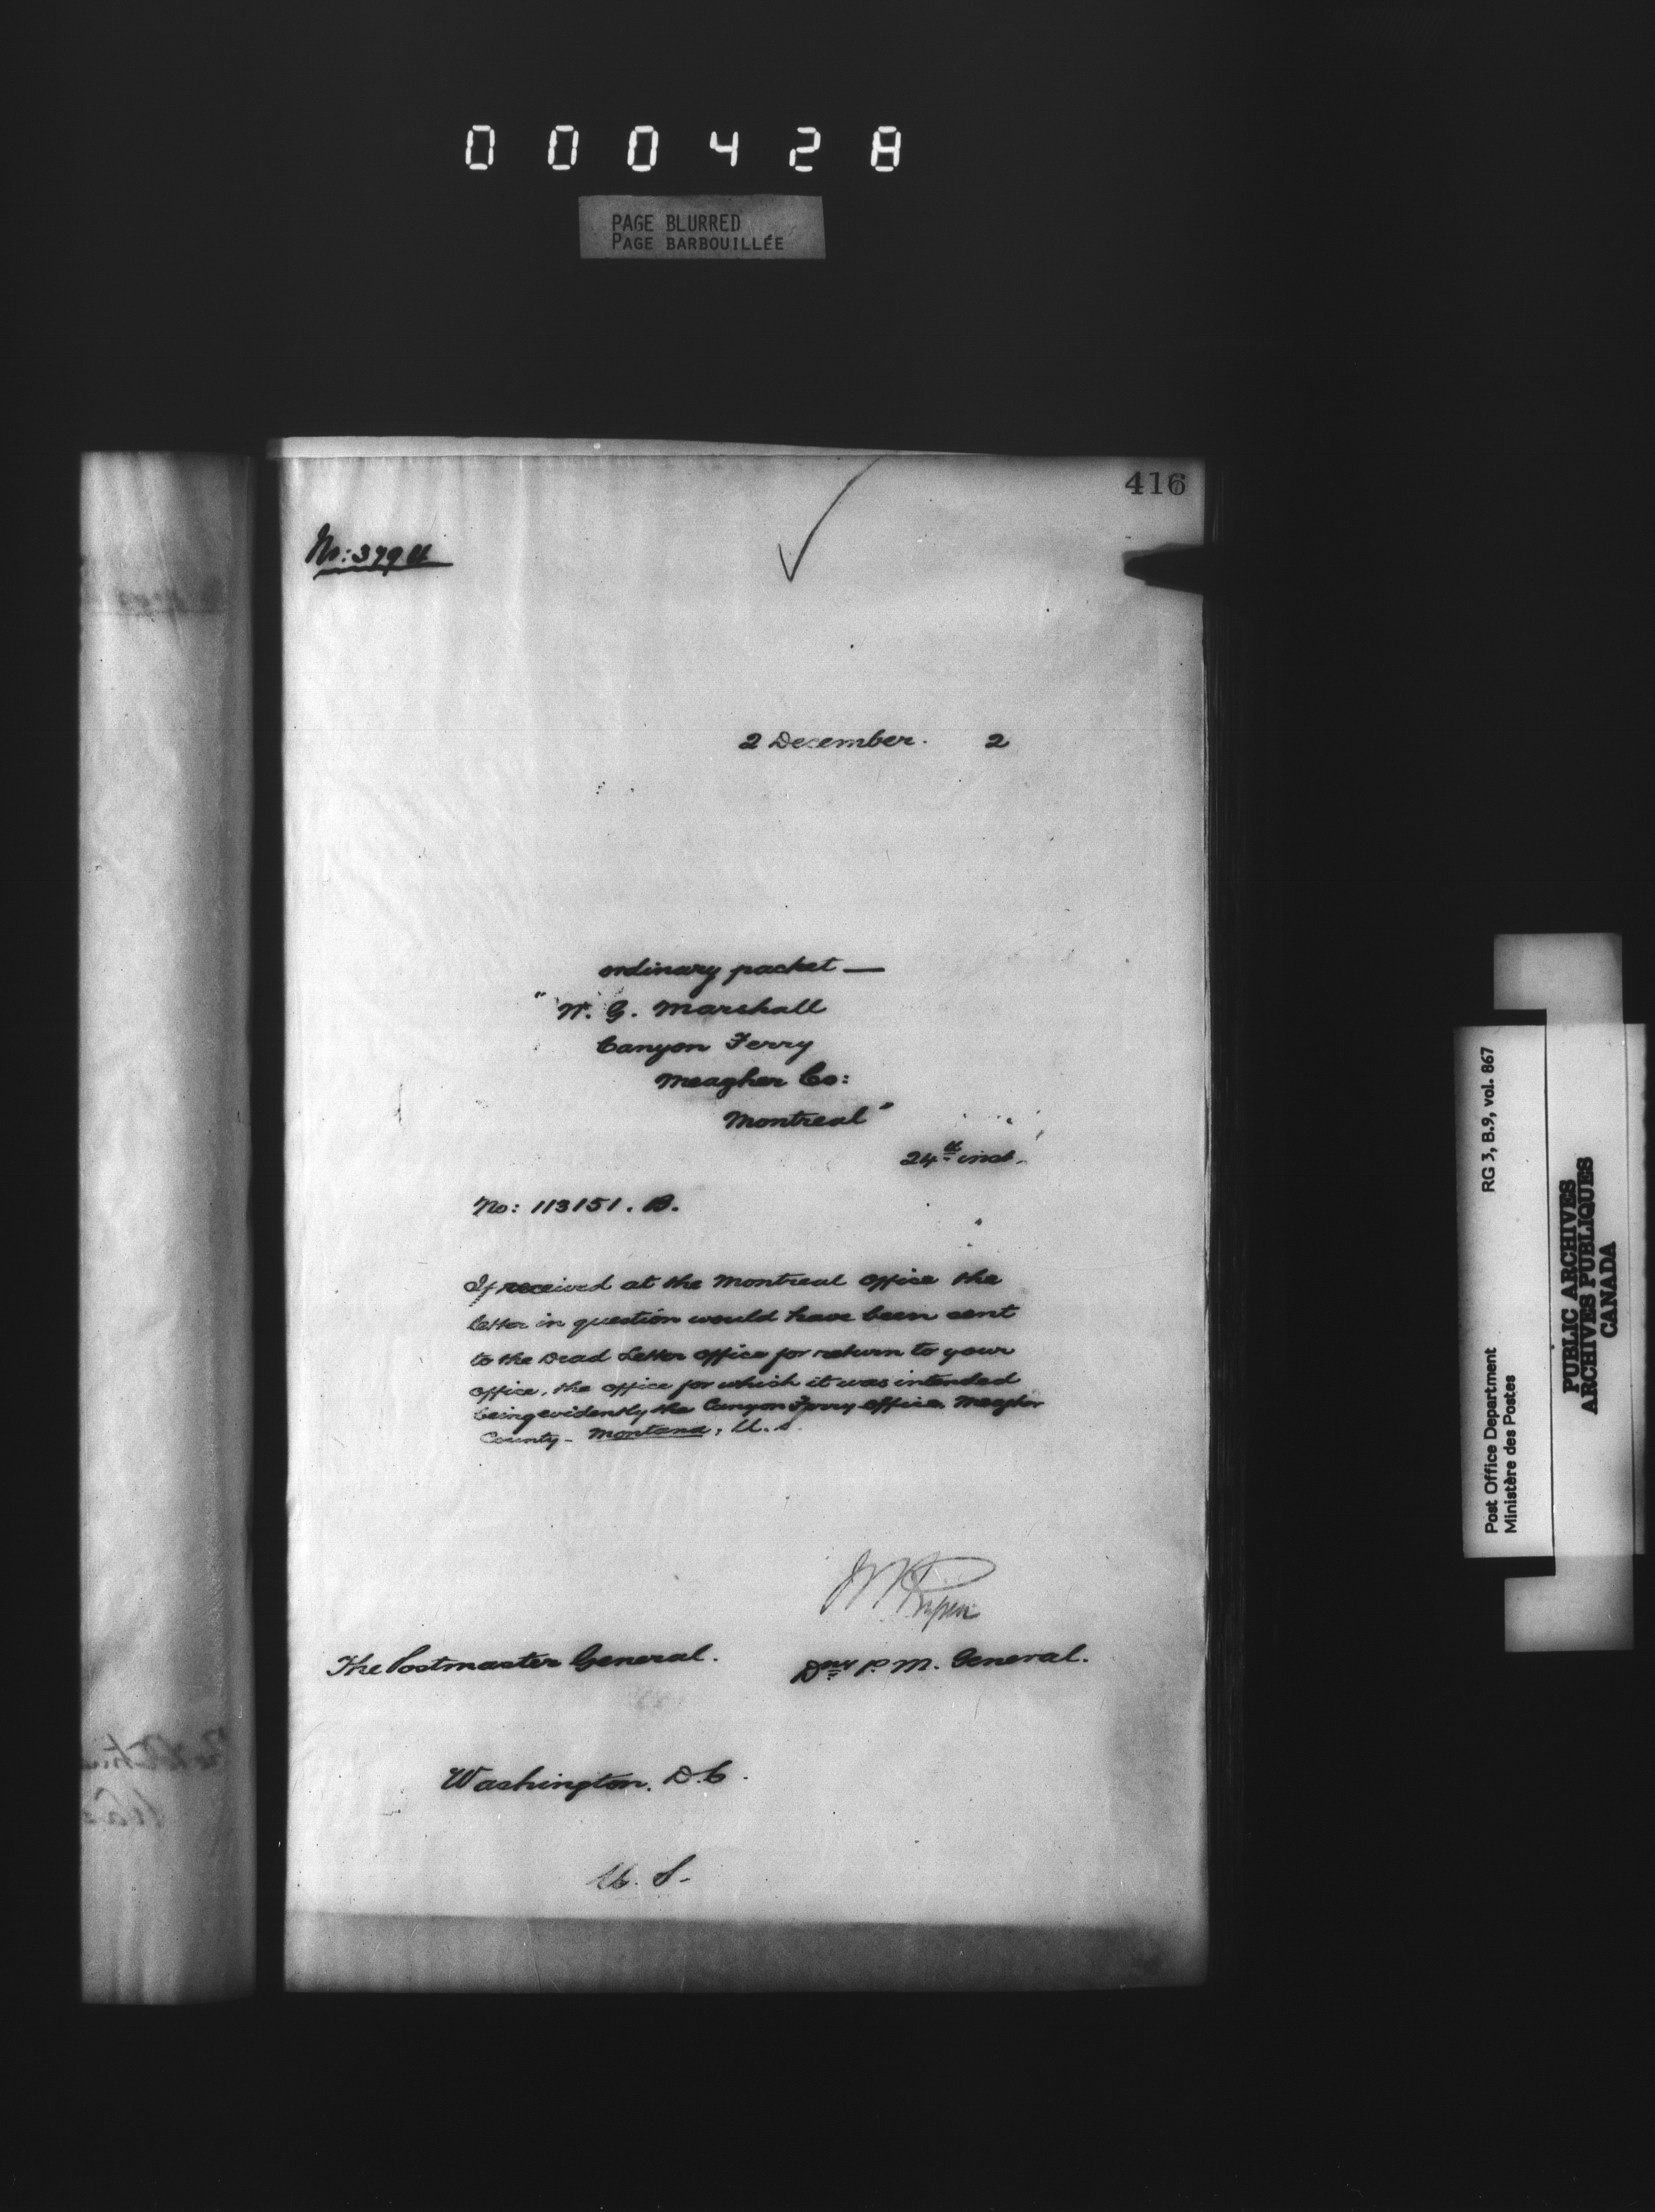 000428
PAGE BLURRED
PAGE BARBOUILLÉE
416
No: 379 U
2 December. 2
ordinary packet —
"W. G. Marshall
Canyon Ferry
Meagher Co:
Montreal"
24th inst.
No: 113151. B.
If received at the Montreal Office the
letter in question would have been sent
to the Dead Letter Office for return to your
Office, the Office for which it was intended
being evidently the Canyon Ferry Office, Meagher
County - Montana, U. S.
The Postmaster General.
Dpy P. M. General.
Washington. D.C.
U. S.
RG 3, B.9, vol. 867
Post Office Department
Ministère des Postes
PUBLIC ARCHIVES
ARCHIVES PUBLIQUES
CANADA